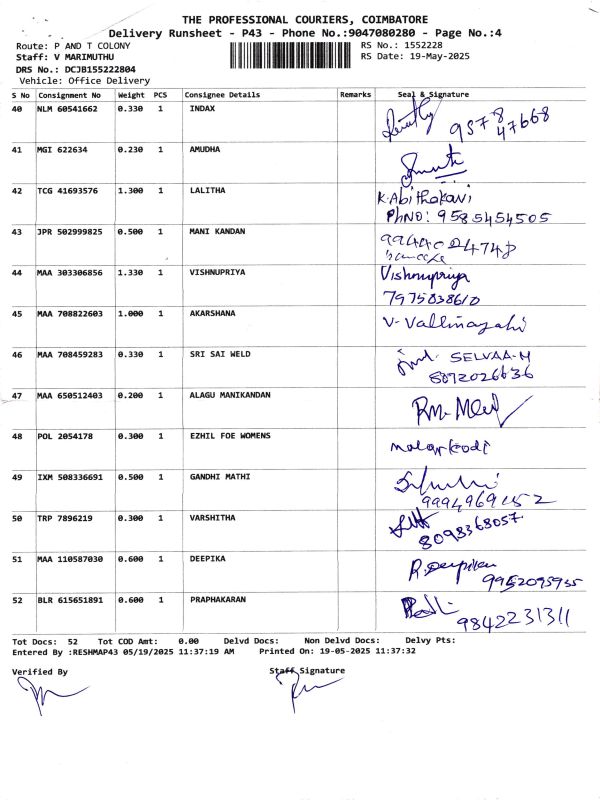 THE PROFESSIONAL COURIERS, COIMBATORE
Delivery Runsheet - P43 - Phone No.:9047080280 - Page No.:4
Route: P AND T COLONY
RS No.: 1552228
Staff: V MARIMUTHU
RS Date: 19-May-2025
DRS No.: DCJB155222804
Vehicle: Office Delivery
S No Consignment No Weight PCS Consignee Details Remarks Seal & Signature
40 NLM 60541662 0.330 1 INDAX
9578 47668
41 MGI 622634 0.230 1 AMUDHA
42 TCG 41693576 1.300 1 LALITHA K.Abithakani
PhNO: 9585454505
43 JPR 502999825 0.500 1 MANI KANDAN
44 MAA 303306856 1.330 1 VISHNUPRIYA Vishnupriya
7975838610
45 MAA 708822603 1.000 1 AKARSHANA V-Vallinayahi
46 MAA 708459283 0.330 1 SRI SAI WELD SELVAA-M
8072026636
47 MAA 650512403 0.200 1 ALAGU MANIKANDAN
48 POL 2054178 0.300 1 EZHIL FOE WOMENS malarkodi
49 IXM 508336691 0.500 1 GANDHI MATHI
50 TRP 7896219 0.300 1 VARSHITHA
8098368057
51 MAA 110587030 0.600 1 DEEPIKA R.Deepika
9952095935
52 BLR 615651891 0.600 1 PRAPHAKARAN
9842231311
Tot Docs: 52 Tot COD Amt: 0.00 Delvd Docs: Non Delvd Docs: Delvy Pts:
Entered By :RESHMAP43 05/19/2025 11:37:19 AM Printed On: 19-05-2025 11:37:32
Verified By
Staff Signature